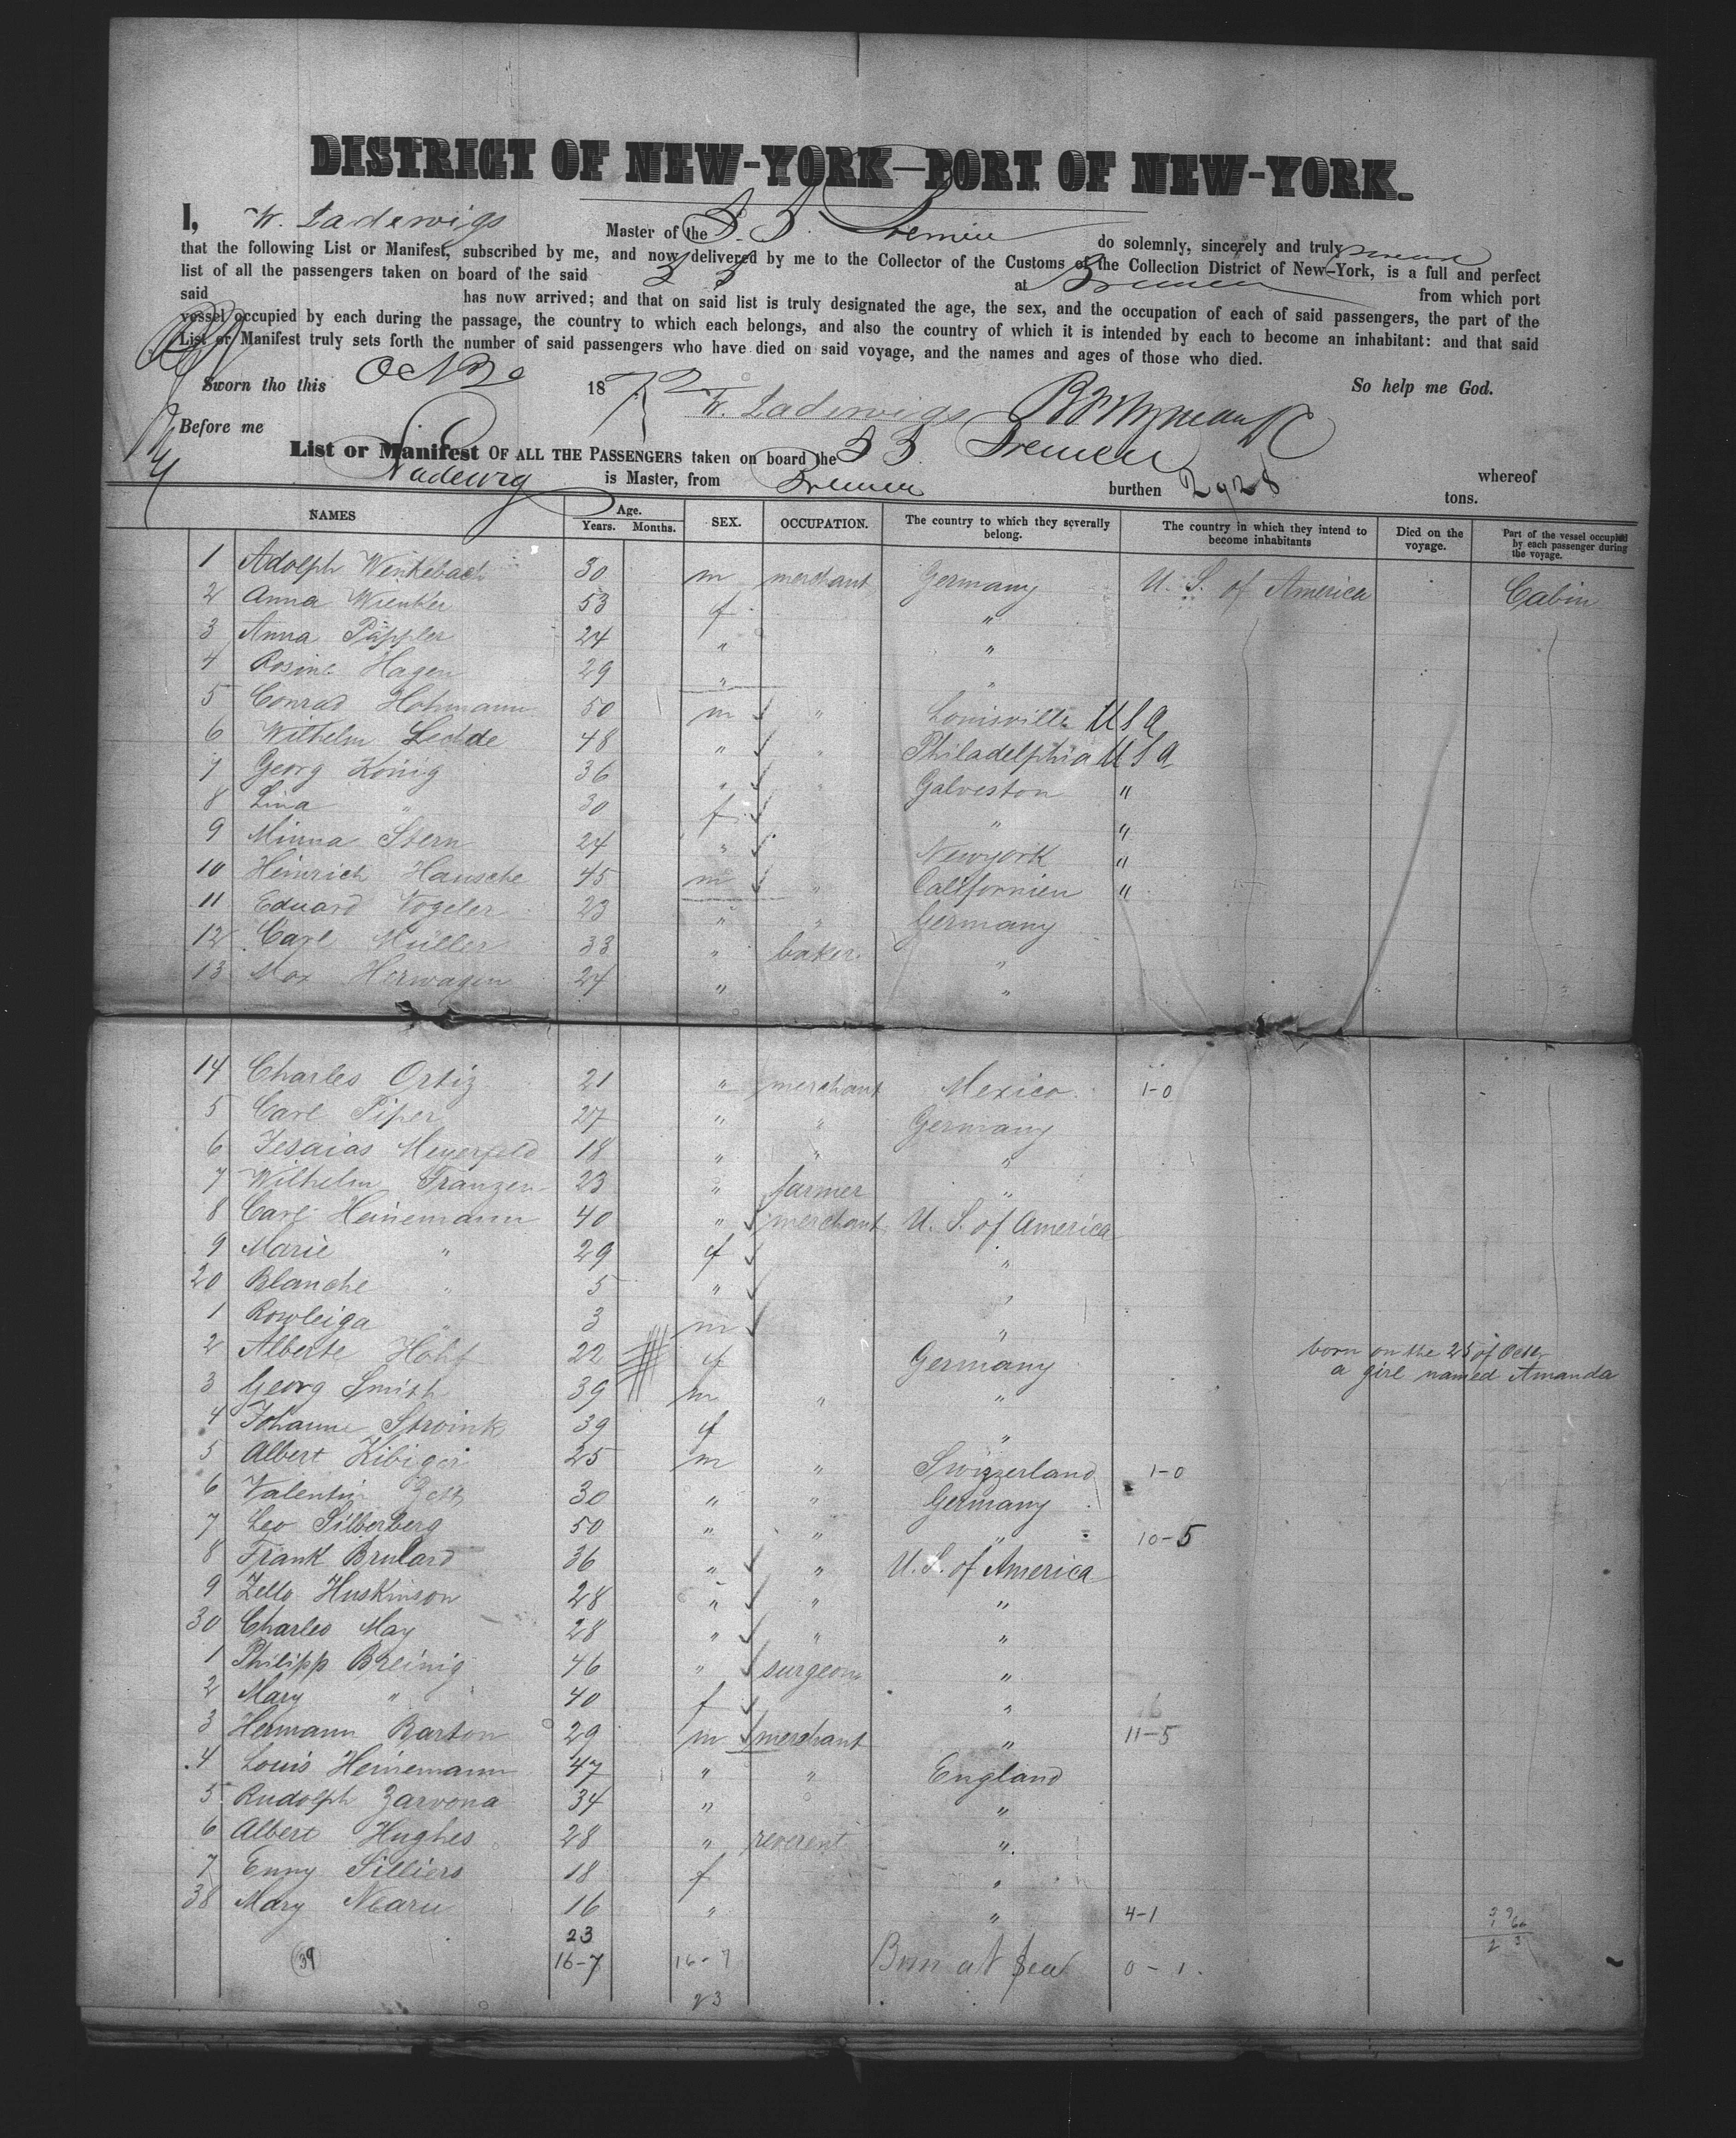 DISTRICT OF NEW-YORK—PORT OF NEW-YORK.
I, W. Ladewigs Master of the S. S. Bremen do solemnly, sincerely and truly swear
that the following List or Manifest, subscribed by me, and now delivered by me to the Collector of the Customs of the Collection District of New-York, is a full and perfect
list of all the passengers taken on board of the said S S at Bremen from which port
said has now arrived; and that on said list is truly designated the age, the sex, and the occupation of each of said passengers, the part of the
vessel occupied by each during the passage, the country to which each belongs, and also the country of which it is intended by each to become an inhabitant: and that said
List or Manifest truly sets forth the number of said passengers who have died on said voyage, and the names and ages of those who died.
Sworn tho this 1872 So help me God.
W. Ladewigs
Before me
List or Manifest OF ALL THE PASSENGERS taken on board the S S Bremen whereof
Ladewig is Master, from Bremen burthen 2928 tons.
NAMES Age. Years. Months. SEX. OCCUPATION. The country to which they severally belong. The country in which they intend to become inhabitants Died on the voyage. Part of the vessel occupied by each passenger during the voyage.
1 Adolph Wenkebach 30 m merchant Germany U. S. of America Cabin
2 Anna Wienker 53 f "
3 Anna Päppler 24 " "
4 Rosine Hagen 29 " "
5 Conrad Hohmann 50 m " Louisville USA
6 Wilhelm Lechde 48 " " Philadelphia USA
7 Georg König 36 " " Galveston "
8 Lina " 30 f " "
9 Minna Stern 24 " Newyork "
10 Heinrich Hansche 45 m " Californien "
11 Eduard Vogeler 23 " " Germany
12 Carl Müller 33 " baker "
13 Max Herwagen 24 " "
14 Charles Ortiz 21 " merchant Mexico 1-0
5 Carl Piper 27 " " Germany
6 Jesaias Meyerfeld 18 " " "
7 Wilhelm Franzen 23 " farmer "
8 Carl Heinemann 40 " merchant U. S. of America
9 Marie " 29 f "
20 Blanche " 5 " "
1 Rowleiga " 3 m "
2 Alberte Hohf 22 f Germany born on the 25 of Octbr
a girl named Amanda
3 Georg Smith 39 m " "
4 Johanne Stroink 39 f "
5 Albert Kibiger 25 m " Swizzerland 1-0
6 Valentin 30 " " Germany
7 Leo Silberberg 50 " " " 10-5
8 Frank Brulard 36 " " U. S. of America
9 Zello Huskinson 28 " " "
30 Charles May 28 " " "
1 Philipp Breinig 46 " surgeon "
2 Mary " 40 f " 16
3 Hermann Barton 29 m merchant " 11-5
4 Louis Heinemann 47 " " England
5 Rudolph Zarvona 34 " "
6 Albert Hughes 28 " reverent "
7 Enny Silliers 18 f "
38 Mary Nearu 16 " " 4-1
23
39 16-7 16-7 Born at Sea 0-1
23